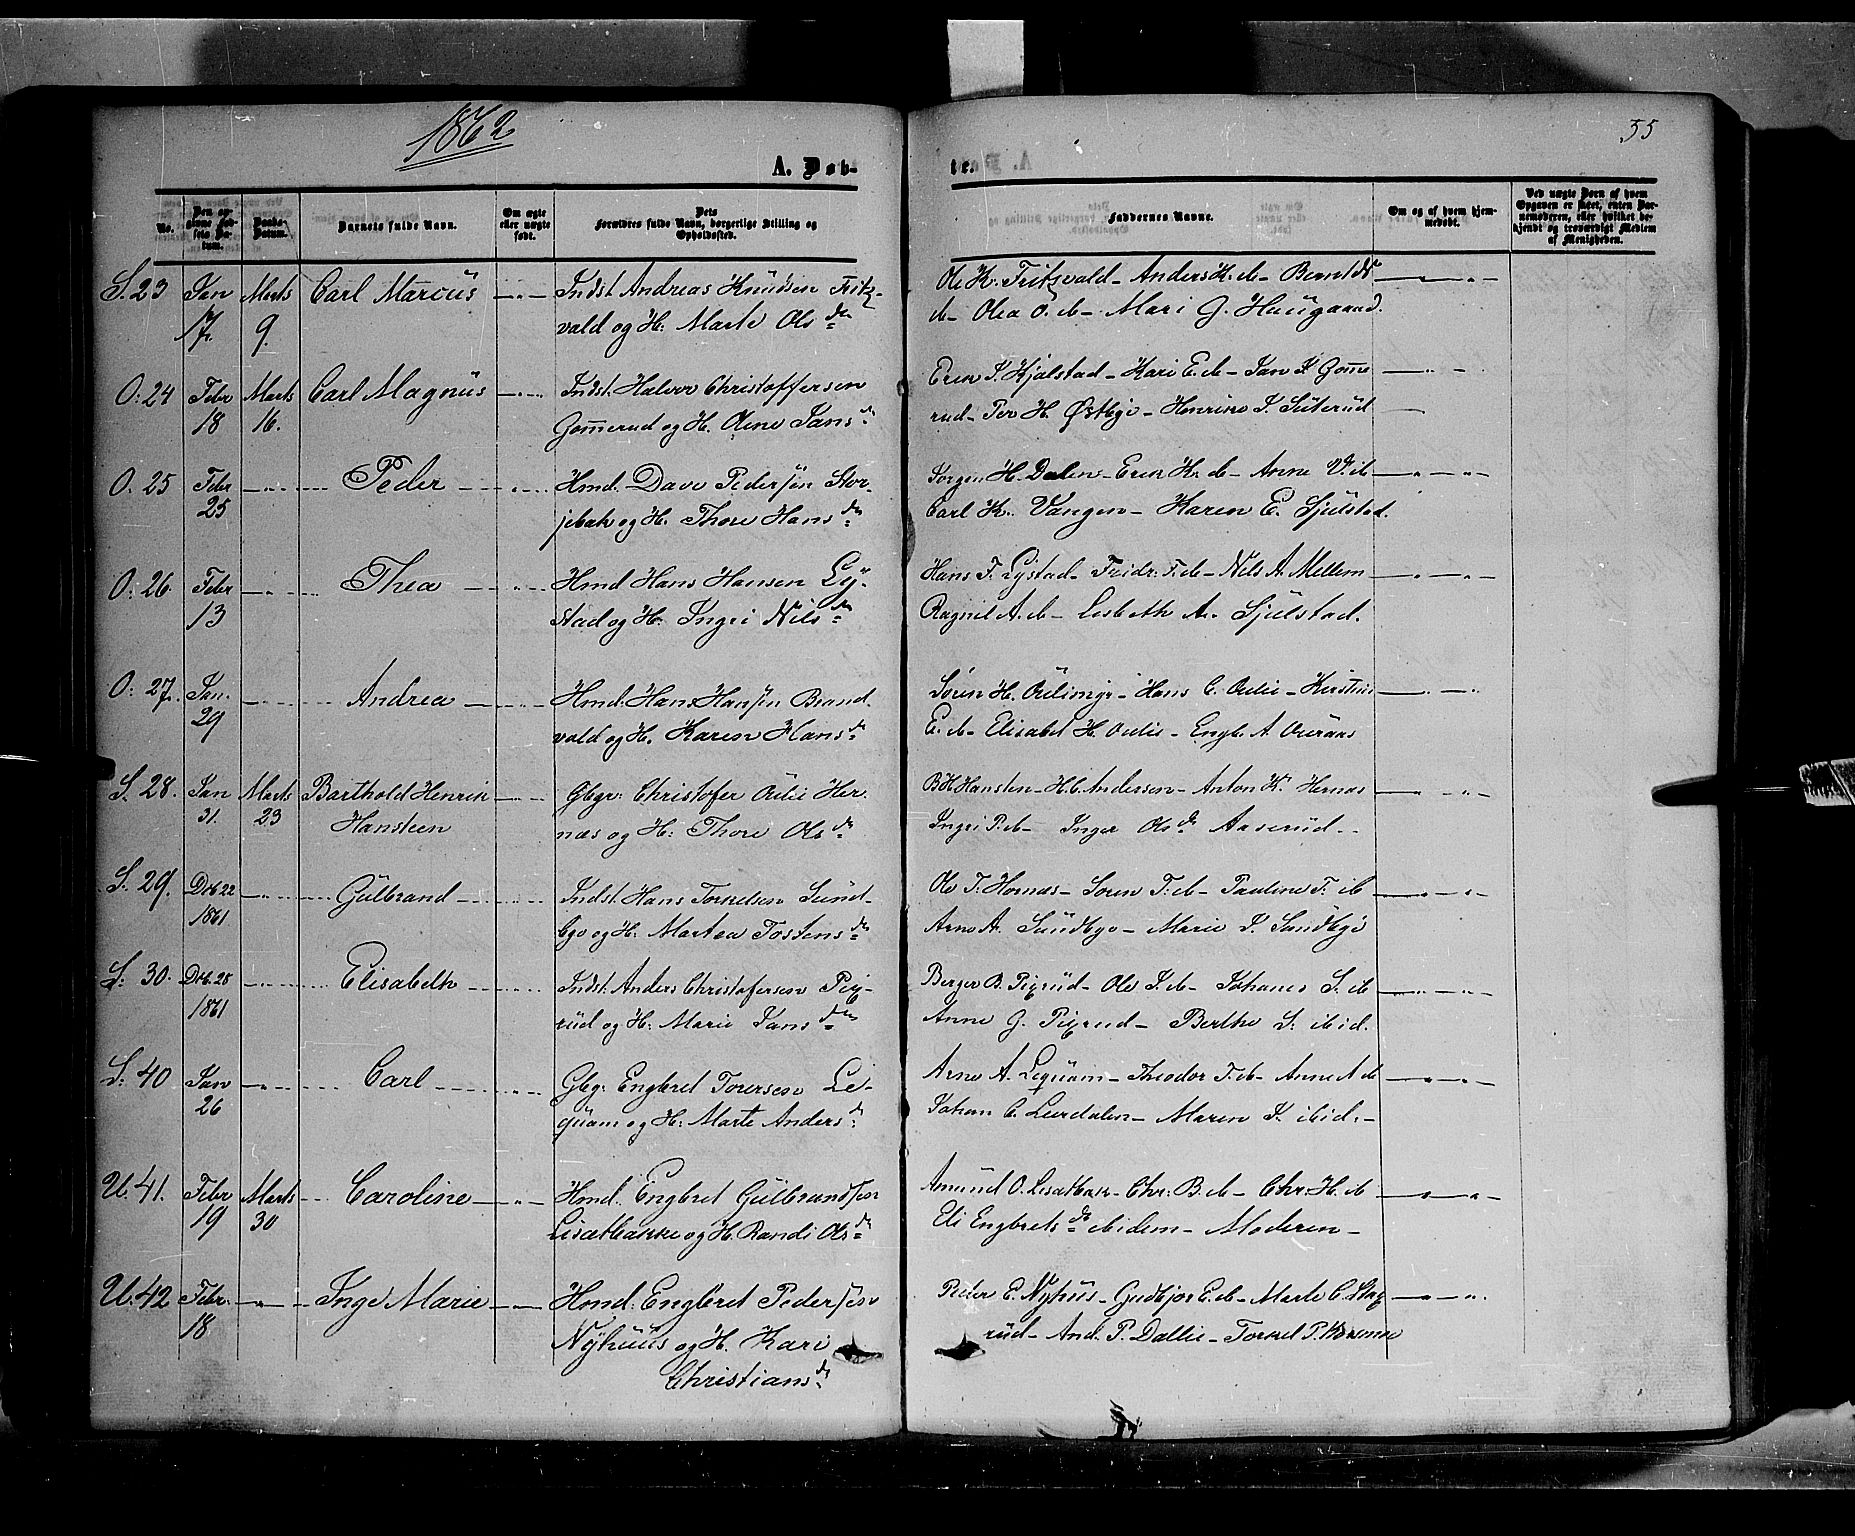 1862
55
A. Døb-
te.
No.
Den opgivne Fødsels Datum.
Daabs-Datum.
Barnets fulde Navn.
Om ægte eller uægte født.
Dets Forældres fulde Navn, borgerlige Stilling og Opholdssted.
Faddernes Navne.
Om og af hvem hjemmedøbt.
Ved uægte Børn af hvem Opgaven er skeet, enten Barnemoderen, eller hvilket bekjendt og troværdigt Medlem af Menigheden.
S. 23 Jan 17. Marts 9. Carl Marcus
Indst Andreas Knudsen Fritz-
vald og H: Marte Olsdr
Ole K. Fritzvald - Anders K. ib - Bernt N
ib - Olea O. ib - Mari G. Haugaard.
O: 24 Febr 18 Marts 16. Carl Magnus
Indst: Halvor Christoffersen
Gomerud og H. Olene Jansdr
Eren J. Kjølstad - Kari E. ib - Jan K Gome
rud - Per H. Østbye - Henrine J. Seiterud
O. 25 Febr 25 Peder
Hmd. Dave Pedersen Stor-
jebak og H. Thore Hansdr
Jørgen H. Dalen - Eren H. ib - Anne V. ib
Carl K. Vangen - Karen E. Sjulstad.
O: 26. Febr 13 Thea
Hmd Hans Hansen Ly-
stad og H. Ingri Nilsdr
Hans F. Lystad - Fridr: F. ib - Nils A. Mellem
Ragnil A. ib - Lisbeth A. Sjulstad.
O: 27. Jan. 29 Andrea
Hmd: Hans Hansen Brand-
vald og H. Karen Hansdr
Søren H. Oulimyr - Hans C. Oulie - Kirstine
E. ib - Elisabet H. Oulie - Engb. A. Ouraas
S. 28. Jan 31. Marts 23 Barthold Henrik
Hansteen
Gbgr: Christofer Oulie Her-
næs og H: Thore Olsdr
B H Hansten - H. C. Andersen - Anton K. Hernæs
Ingri P. ib - Inger Olsdr Aaserud -
S. 29. Deb 22 1861 Gulbrand
Indst. Hans Torkelsen Sund-
bye og H: Martea Tostensdr
Ole T. Hernæs - Soren T. ib - Pauline T. ib
Arne A. Sundbye - Marie J. Sundbye
S: 30. Deb. 28 1861 Elisabeth
Indst: Anders Christofersen Pix-
rud og H: Marie Jansdr
Berger B. Pixrud - Ole J. ib - Johanes S. ib
Anne G. Pixrud - Berthe S. ibid.
S: 40 Jan 26 Carl
Gbg: Engbret Torersen Le-
quam og H: Marte Andersdr
Arne A. Lequam - Theodor T. ib - Anne A ib
Johan C. Leirdalen - Maren J. ibid. -
U. 41. Febr 19 Marts 30 Caroline
Hmd. Engbret Gulbrandsen
Lisætbakke og H. Randi Olsdr
Amund O. Lisætbak - Chr: B. ib - Chr. H. ib
Eli Engbretsdr ibidem - Moderen -
U. 42 Febr. 18 Inge Marie
Hmd: Engbret Pedersen
Nyhuus og H. Kari
Christiansdr
Peder E. Nyhus - Gudbjør E. ib - Marte C. Skog
rud - And. P. Dallie - Torkel P.